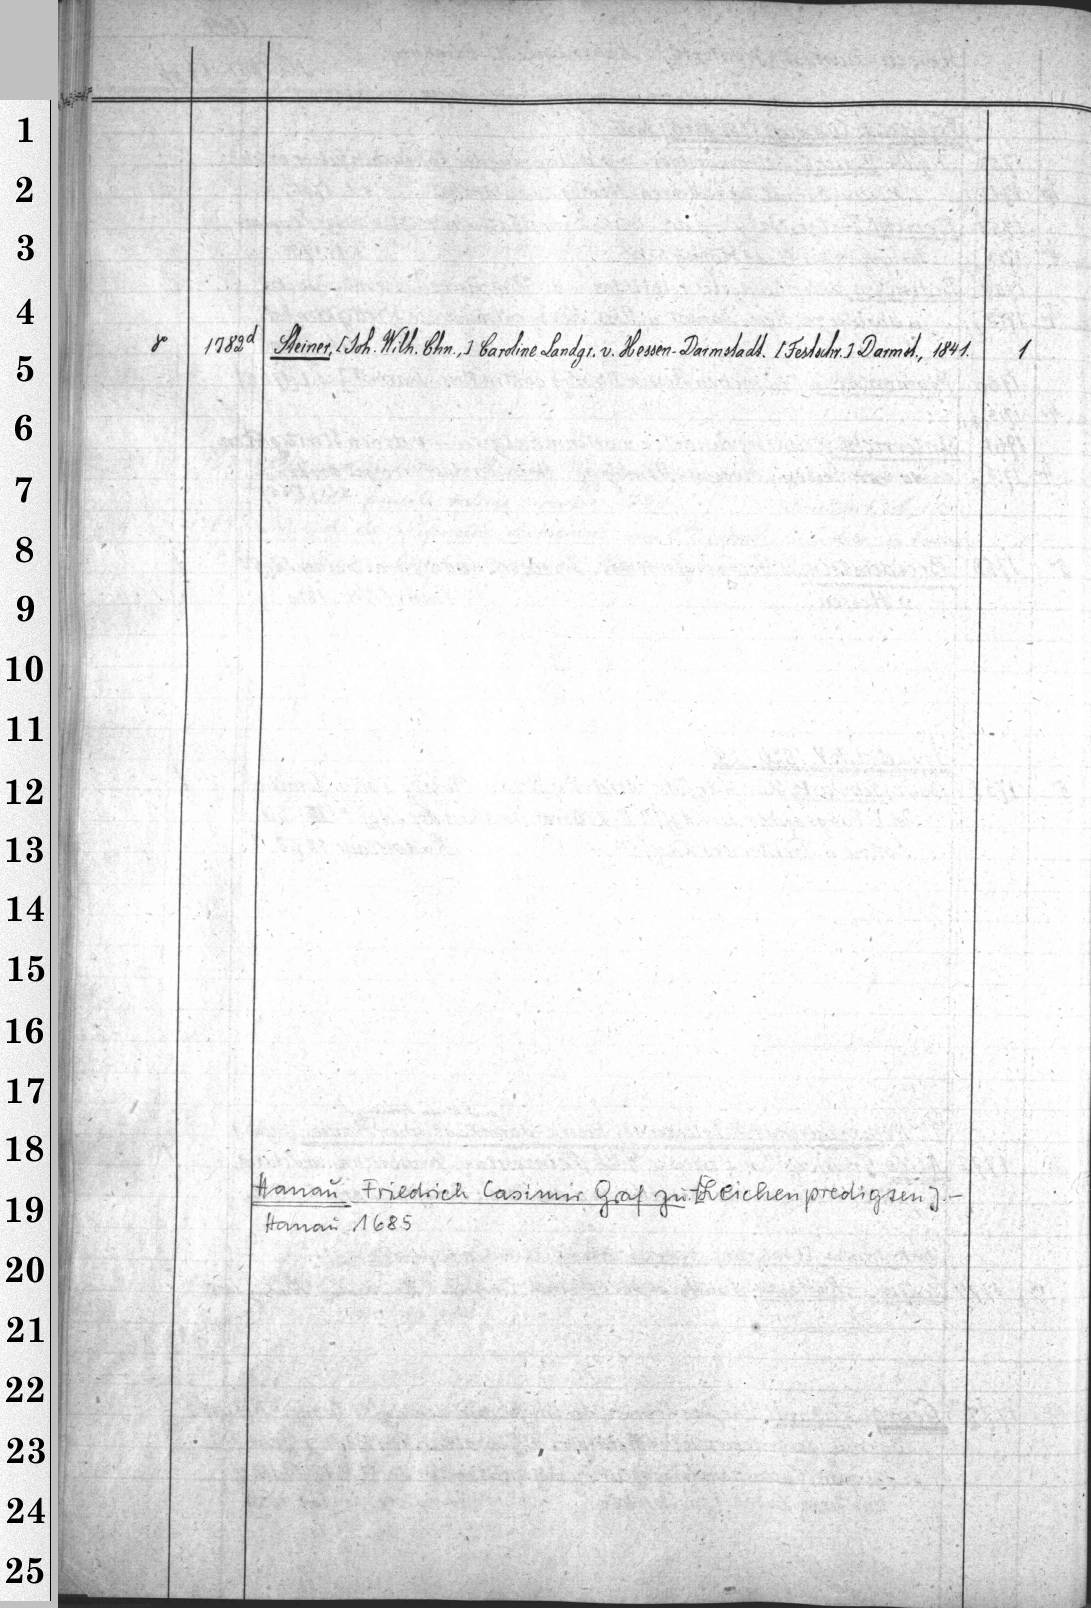 1
2
3
4
8° 1782d Steiner, [Joh. Wilh. Chn.,] Caroline Landgr. v. Hessen-Darmstadt. [Festschr.] Darmst., 1841. 1
5
6
7
8
9
10
11
12
13
14
15
16
17
18
Hanau Friedrich Casimir Graf zu [Leichenpredigten]. –
19
Hanau 1685
20
21
22
23
24
25